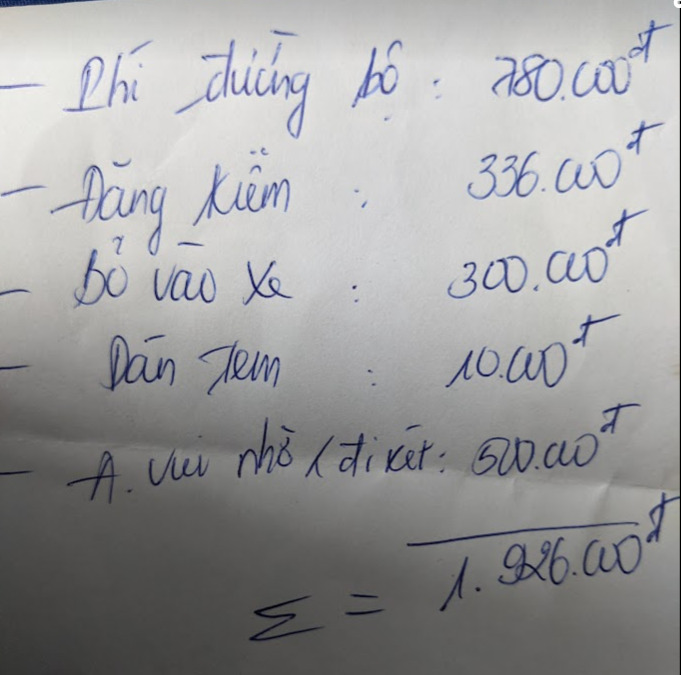 - Phí đường bộ : 780.000đ
- Đăng kiểm : 336.000đ
- Bỏ vào xe : 300.000đ
- Dán tem : 10.000đ
- A. Vui nhờ (đi xét : 500.000đ
Σ = 1.926.000đ